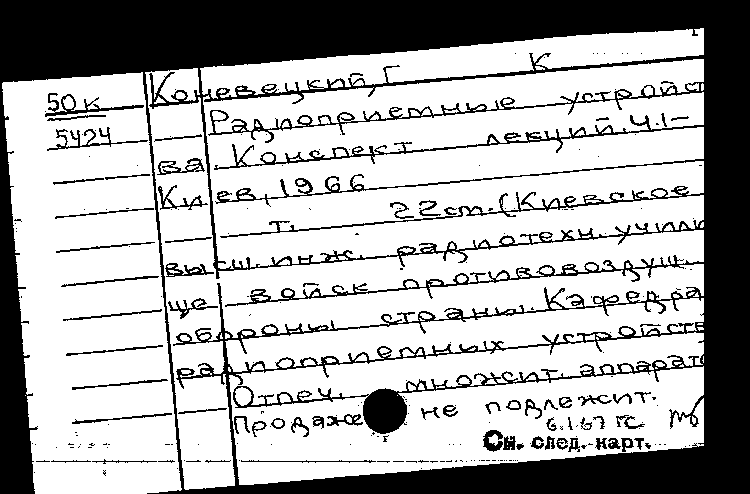 50к Коневецкий, Г К
5424 Радиоприемные устройст
ва. Конспект лекций. Ч.1-
Киев, 1966
т. 22см. (Киевское
высш. инж. радиотехн. учили
ще войск противовоздуш.
обороны страны. Кафедра
радиоприемных устройств
Отпеч. множит. аппарат
Продаже не подлежит.
6.1.67 ГС
См. след. карт.